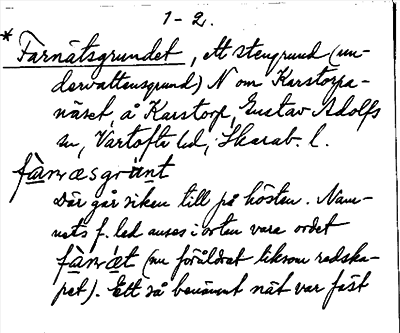 1-2.
* Farnätsgrundet, ett stengrund (un-
dervattensgrund) N om Karstorpa-
näset, å Karstorp, Gustav Adolfs
sn, Vartofta hd, Skarab. l.
Där går siken till på hösten. Nam-
nets f. led anses i orten vara ordet
(nu föråldrat liksom redska-
pet). Ett så benämnt nät var fäst